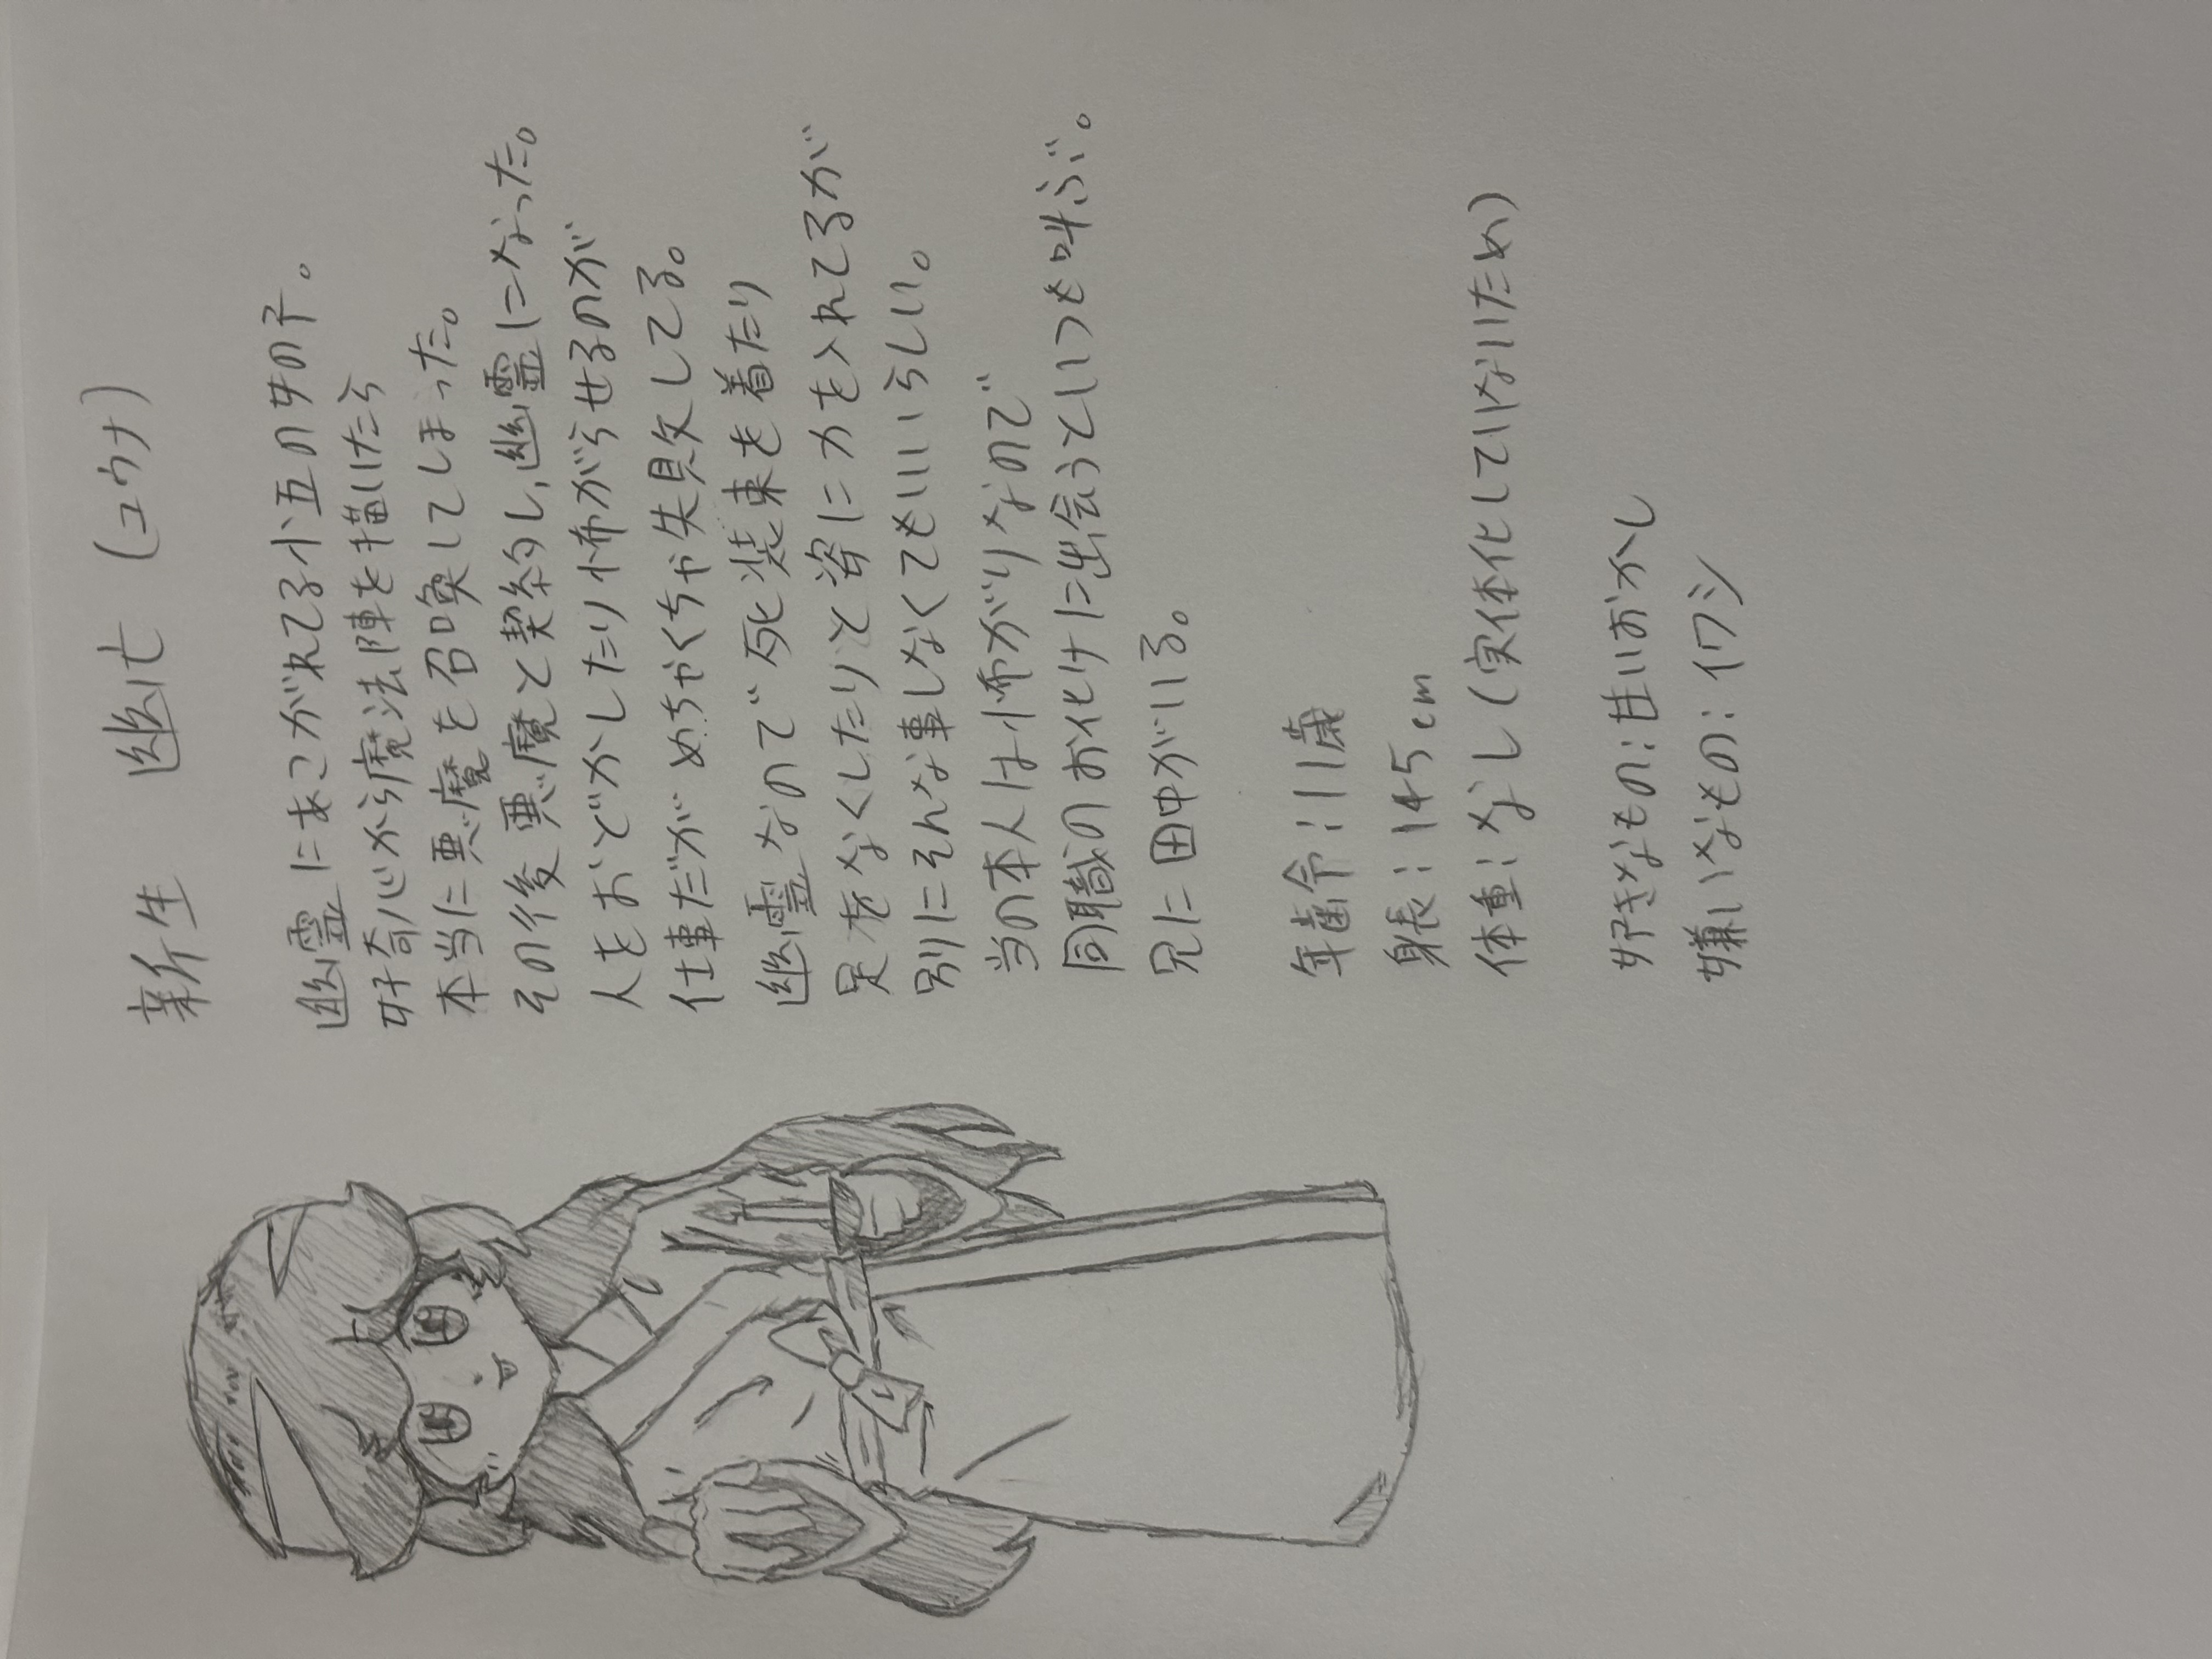 新生 幽亡 (ユウナ)
幽霊にあこがれてる小五の女の子。
好奇心から魔法陣を描いたら
本当に悪魔を召喚してしまった。
その後悪魔と契約し、幽霊になった。
人をおどかしたり怖がらせるのが
仕事だがめちゃくちゃ失敗してる。
幽霊なので死装束を着たり
足をなくしたりと姿に力を入れてるが
別にそんな事しなくてもいいらしい。
当の本人は怖がりなので
同職のお化けに出会うといつも叫ぶ。
兄に田中がいる。
年齢:11歳
身長:145cm
体重:なし(実体化していないため)
好きなもの:甘いおかし
嫌いなもの:イワシ